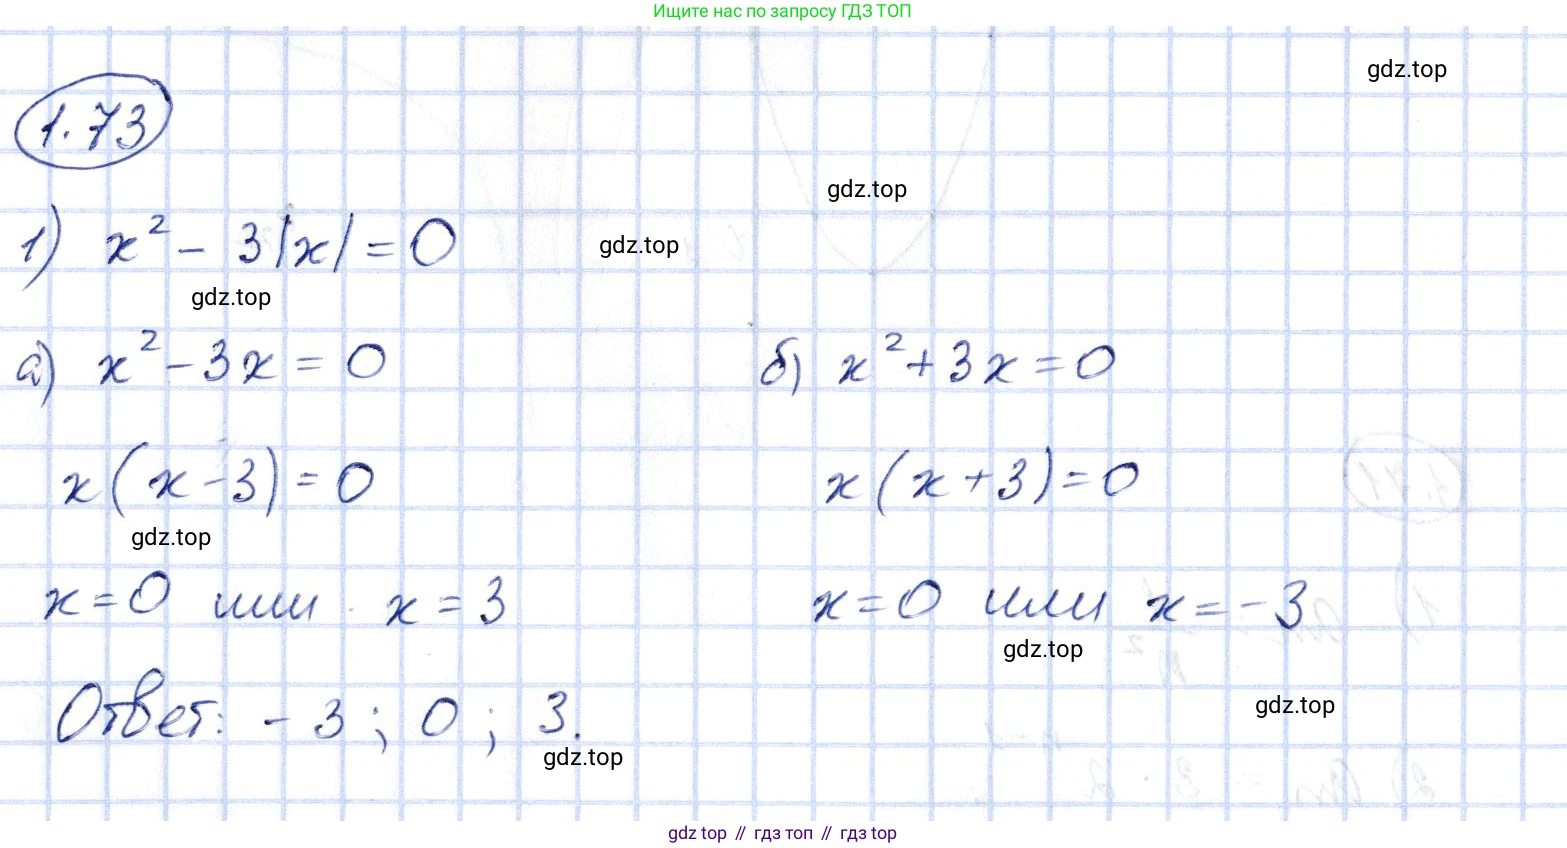 Ищите нас по запросу ГДЗ ТОП
gdz.top
1.73
gdz.top
1) x² - 3|x| = 0
gdz.top
gdz.top
а) x² - 3x = 0
б) x² + 3x = 0
x(x - 3) = 0
x(x + 3) = 0
gdz.top
x = 0 или x = 3
x = 0 или x = -3
gdz.top
Ответ: -3; 0; 3.
gdz.top
gdz.top
gdz top // гдз топ // гдз top